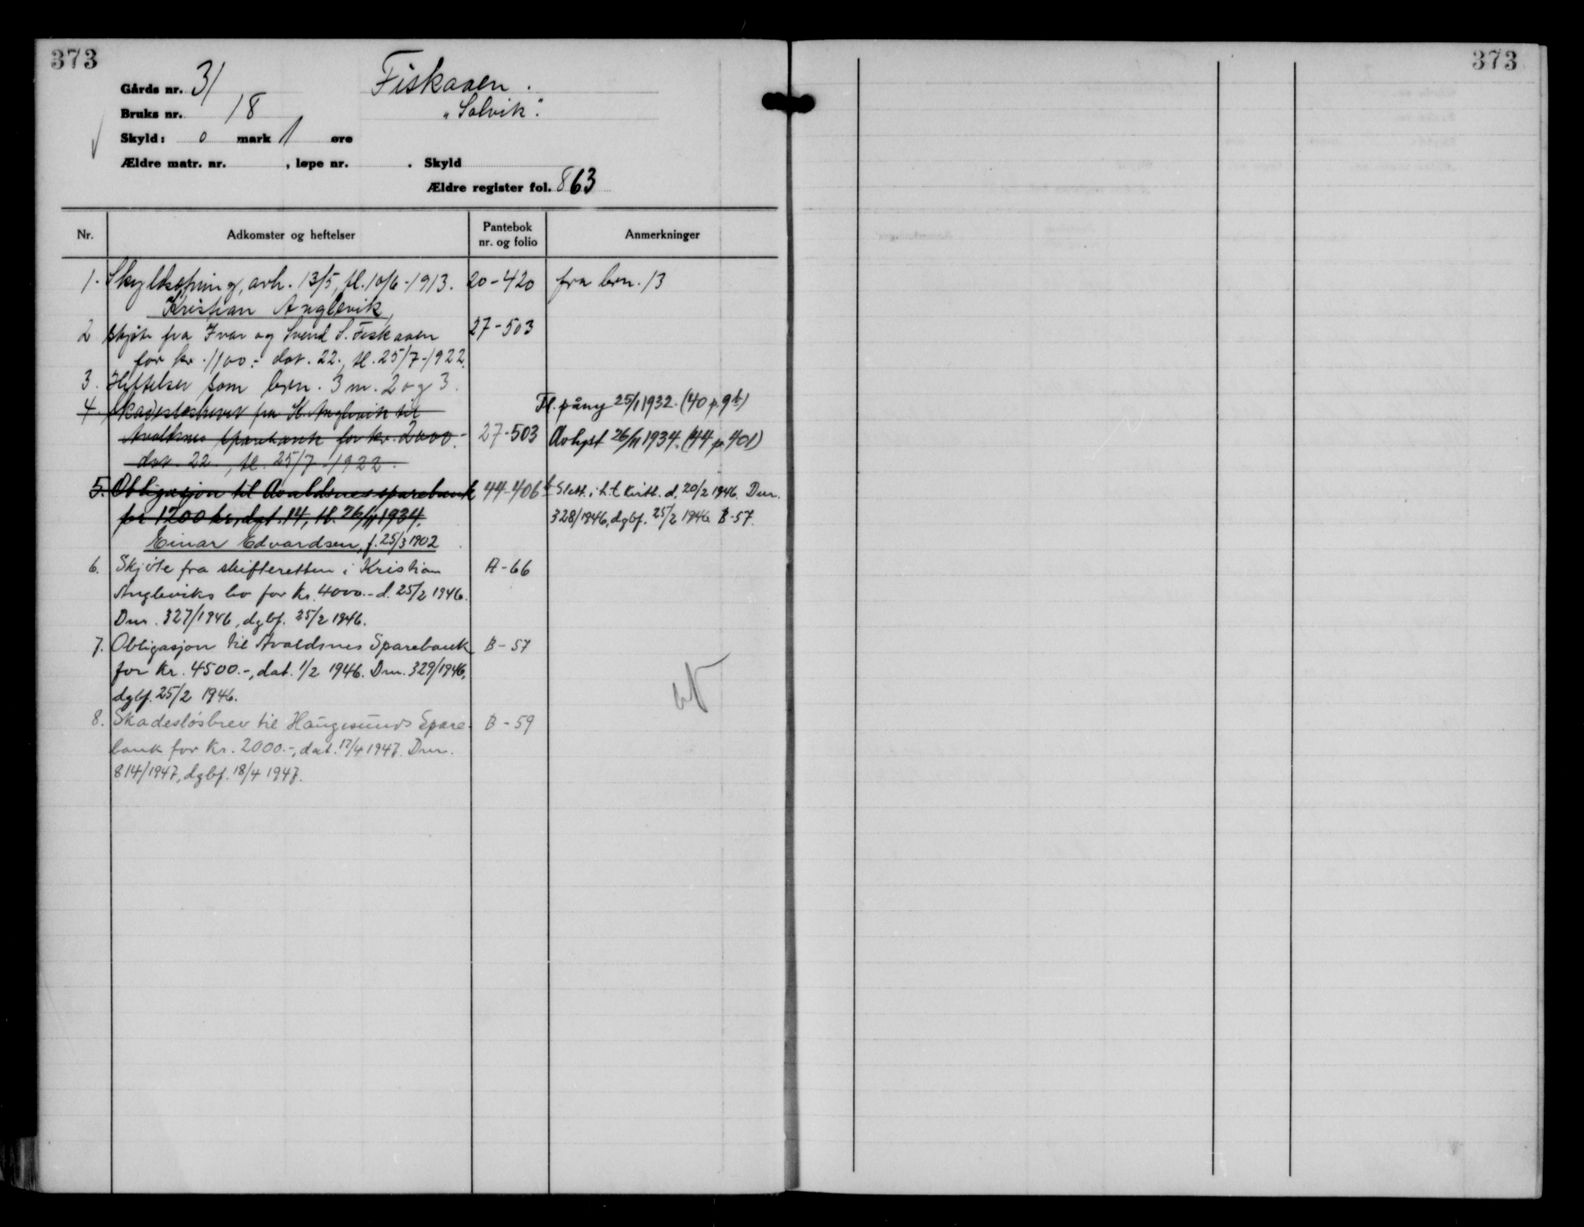 373
373
Gårds nr. 31 Fiskaaen.
Bruks nr. 18 "Solvik".
Skyld: 0 mark 1 øre
Ældre matr. nr. , løpe nr. . Skyld
Ældre register fol. 863
Nr. Adkomster og heftelser Pantebok nr. og folio Anmerkninger
1. Skyldskifting, avh. 13/5, tl. 10/6-1913. 20-420 fra brn. 13
Kristian Anglevik
2 Skjøte fra Ivar og Svend S. Fiskaaen 27-503
for kr. 1100.- dat. 22., tl. 25/7-1922.
3. Heftelser som brn. 3 nr. 2 og 3.
4. Skadesløsbrev fra K. Anglevik til Tl. påny 25/1 1932. (40 p. 9b)
Avaldsnes Sparebank for kr. 2000.- 27-503 Avlyst 26/11 1934. (44 p. 401)
dat. 22., tl. 25/7 1922.
5. Obligasjon til Avaldsnes sparebank 44-406b Slett. i h.t. kvitt. d. 20/2 1946. Dnr.
for 1200 kr., dat. 14, tl. 26/11 1934. 328/1946, dgbf. 25/2 1946. B-57.
Einar Edvardsen, f. 25/3 1902
6. Skjøte fra skifteretten i Kristian A-66
Angleviks bo for kr. 4000.- d. 25/2 1946.
Dnr. 327/1946, dgbf. 25/2 1946.
7. Obligasjon til Avaldsnes Sparebank B-57
for kr. 4500.-, dat. 1/2 1946. Dnr. 329/1946,
dgbf. 25/2 1946.
8. Skadesløsbrev til Haugesunds Spare- B-59
bank for kr. 2000.-, dat. 17/4 1947. Dnr.
814/1947, dgbf. 18/4 1947.